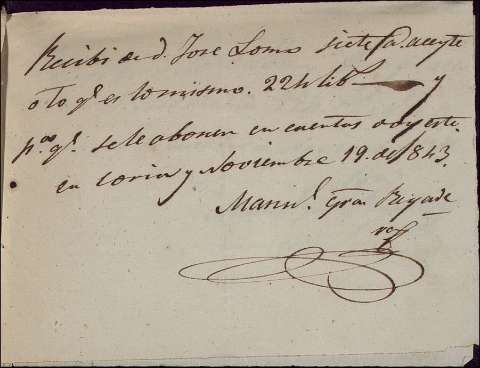 Recibi de d. Jose Lomo siete @. aceyte
o lo q.e es lo mismo. 224 lib.s y
p.a q.e se le abonen en cuentas doy este
en Coria y Noviembre 19. de 843.
Manu.l Gra